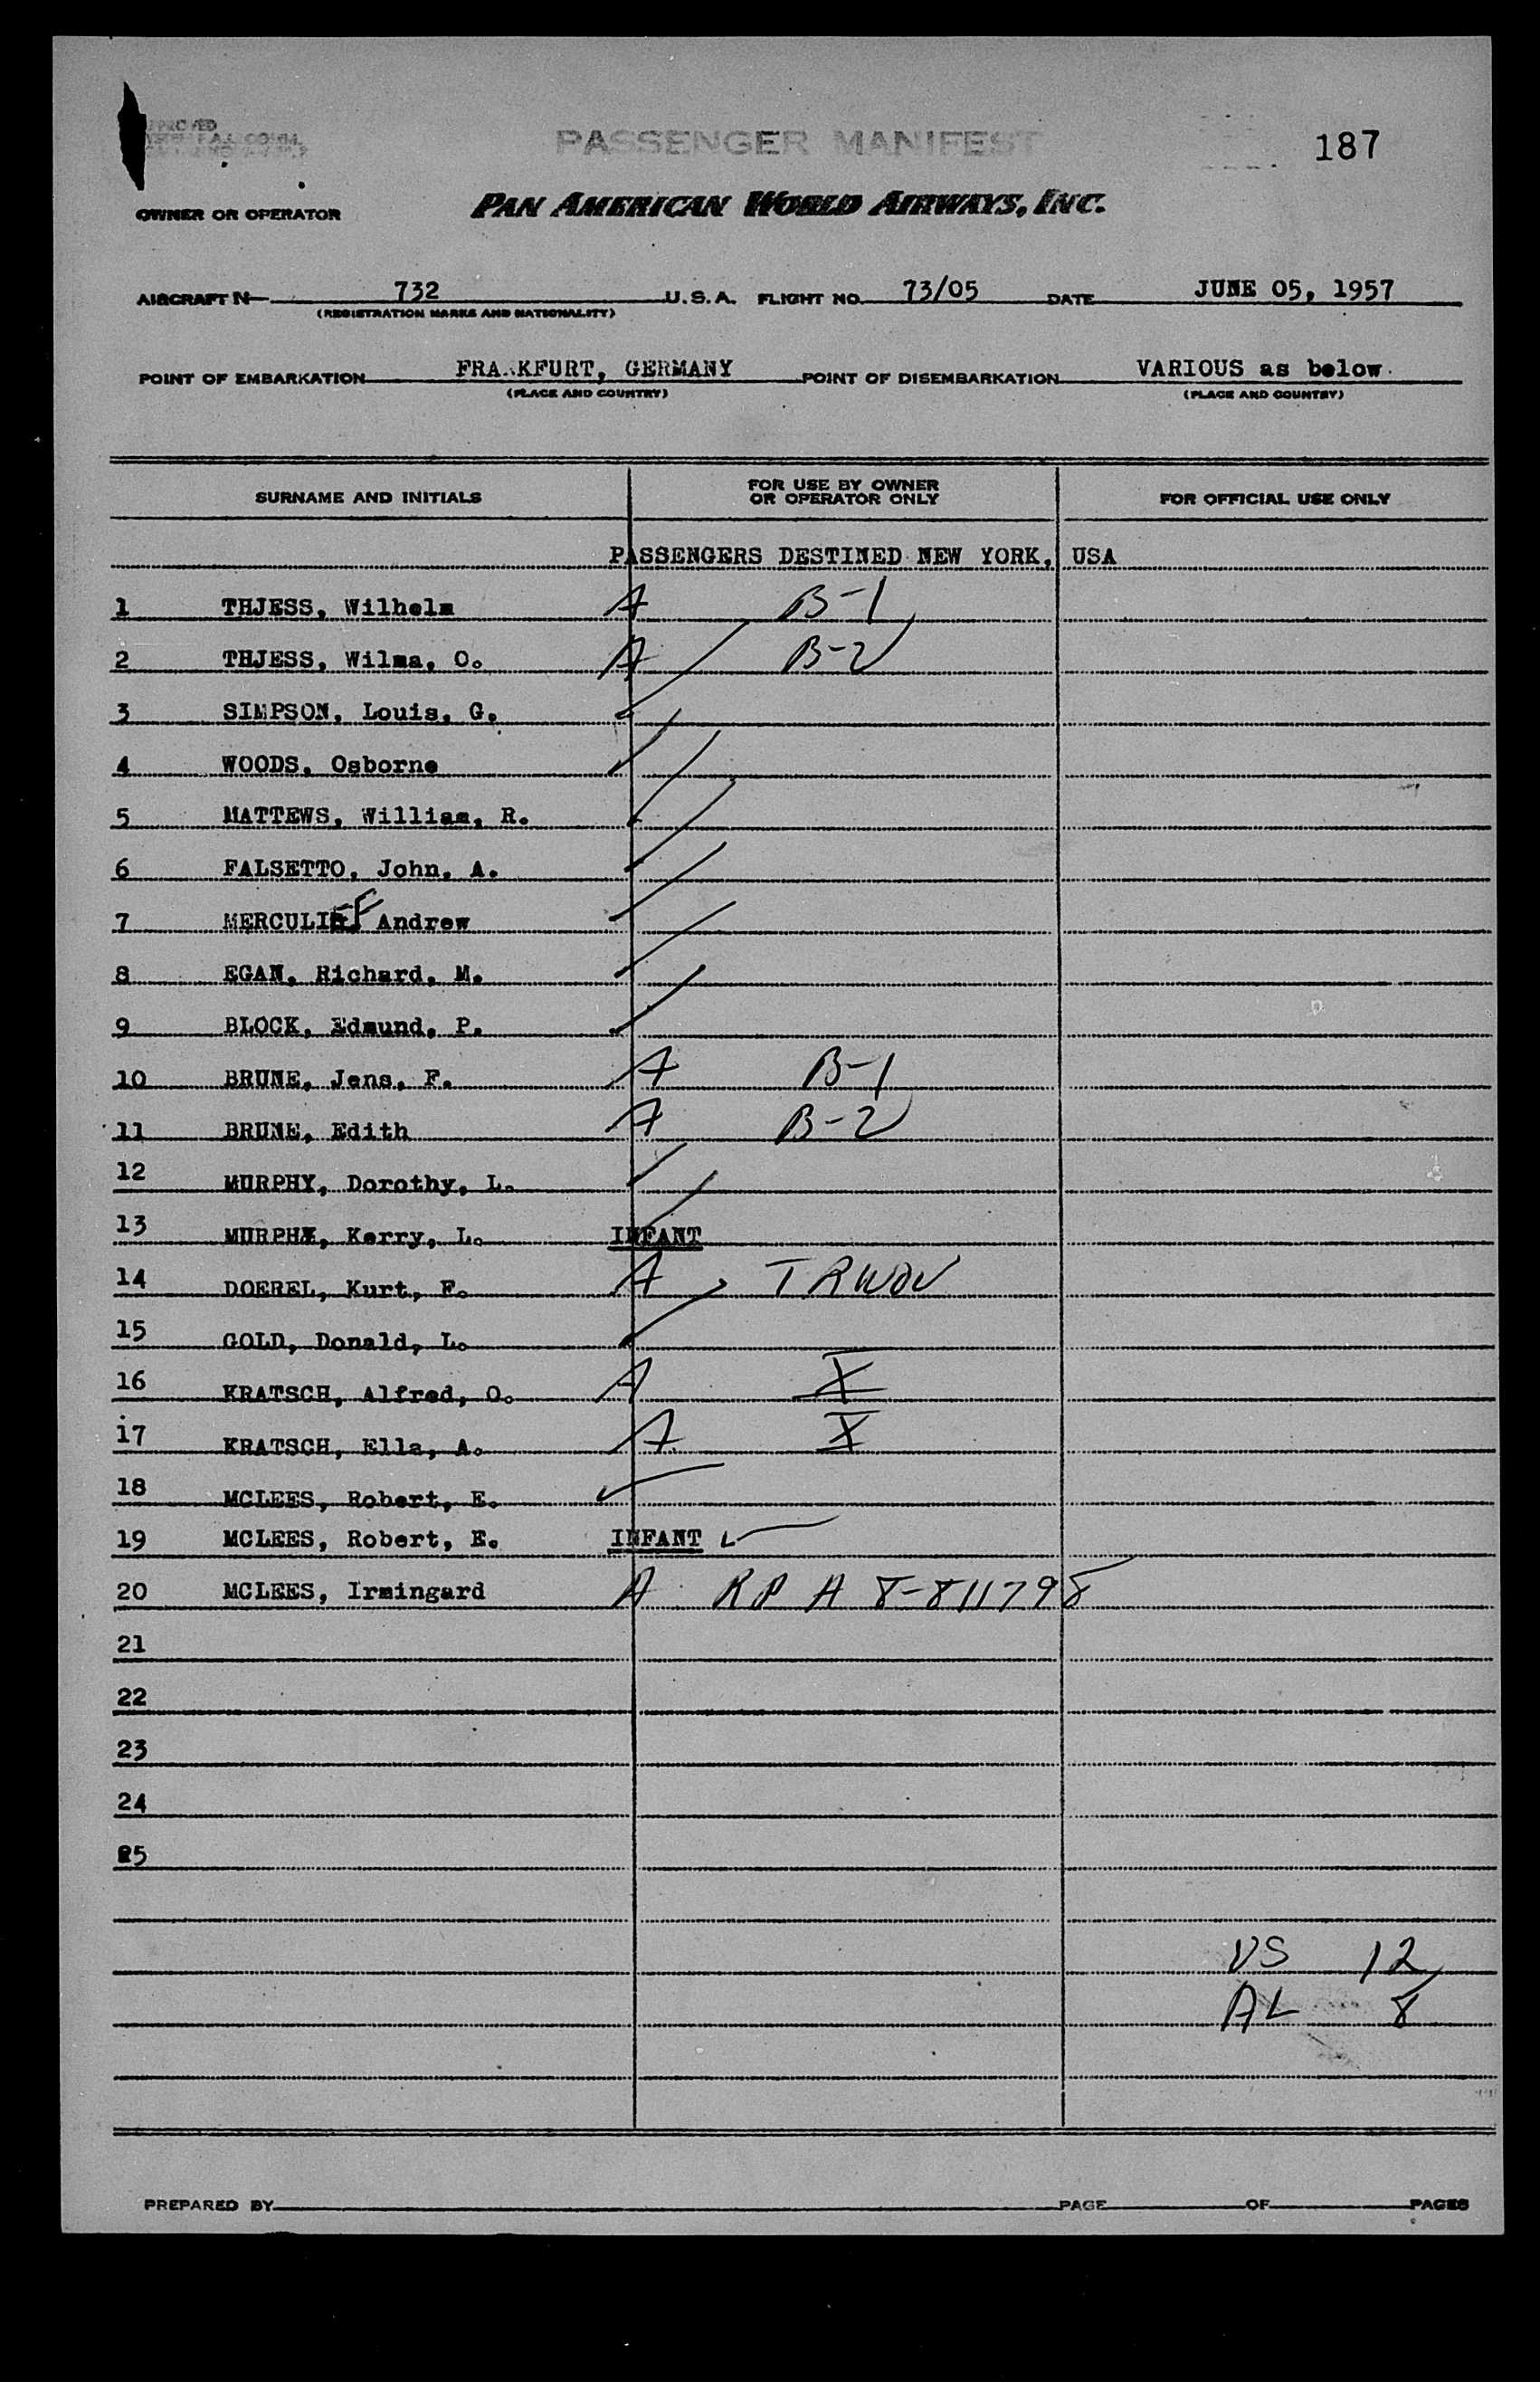 PASSENGER MANIFEST
187
OWNER OR OPERATOR PAN AMERICAN WORLD AIRWAYS, INC.
AIRCRAFT N 732 U.S.A. FLIGHT NO. 73/05 DATE JUNE 05, 1957
(REGISTRATION MARKS AND NATIONALITY)
POINT OF EMBARKATION FRANKFURT, GERMANY POINT OF DISEMBARKATION VARIOUS as below.
(PLACE AND COUNTRY) (PLACE AND COUNTRY)
SURNAME AND INITIALS FOR USE BY OWNER OR OPERATOR ONLY FOR OFFICIAL USE ONLY
PASSENGERS DESTINED NEW YORK, USA
1 THJESS, Wilhelm A B-1
2 THJESS, Wilma, O. A B-2
3 SIMPSON, Louis, G.
4 WOODS, Osborne
5 MATTEWS, William, R.
6 FALSETTO, John, A.
7 MERCULIEF Andrew
8 EGAN, Richard, M.
9 BLOCK, Edmund, P.
10 BRUNE, Jens, F. A B-1
11 BRUNE, Edith A B-2
12 MURPHY, Dorothy, L.
13 MURPHY, Kerry, L. INFANT
14 DOEREL, Kurt, F. A TRWOV
15 GOLD, Donald, L.
16 KRATSCH, Alfred, O. A X
17 KRATSCH, Ella, A. A X
18 MCLEES, Robert, E.
19 MCLEES, Robert, E. INFANT
20 MCLEES, Irmingard A RP A 8-811798
21
22
23
24
25
US 12
AL 8
PREPARED BY PAGE OF PAGES